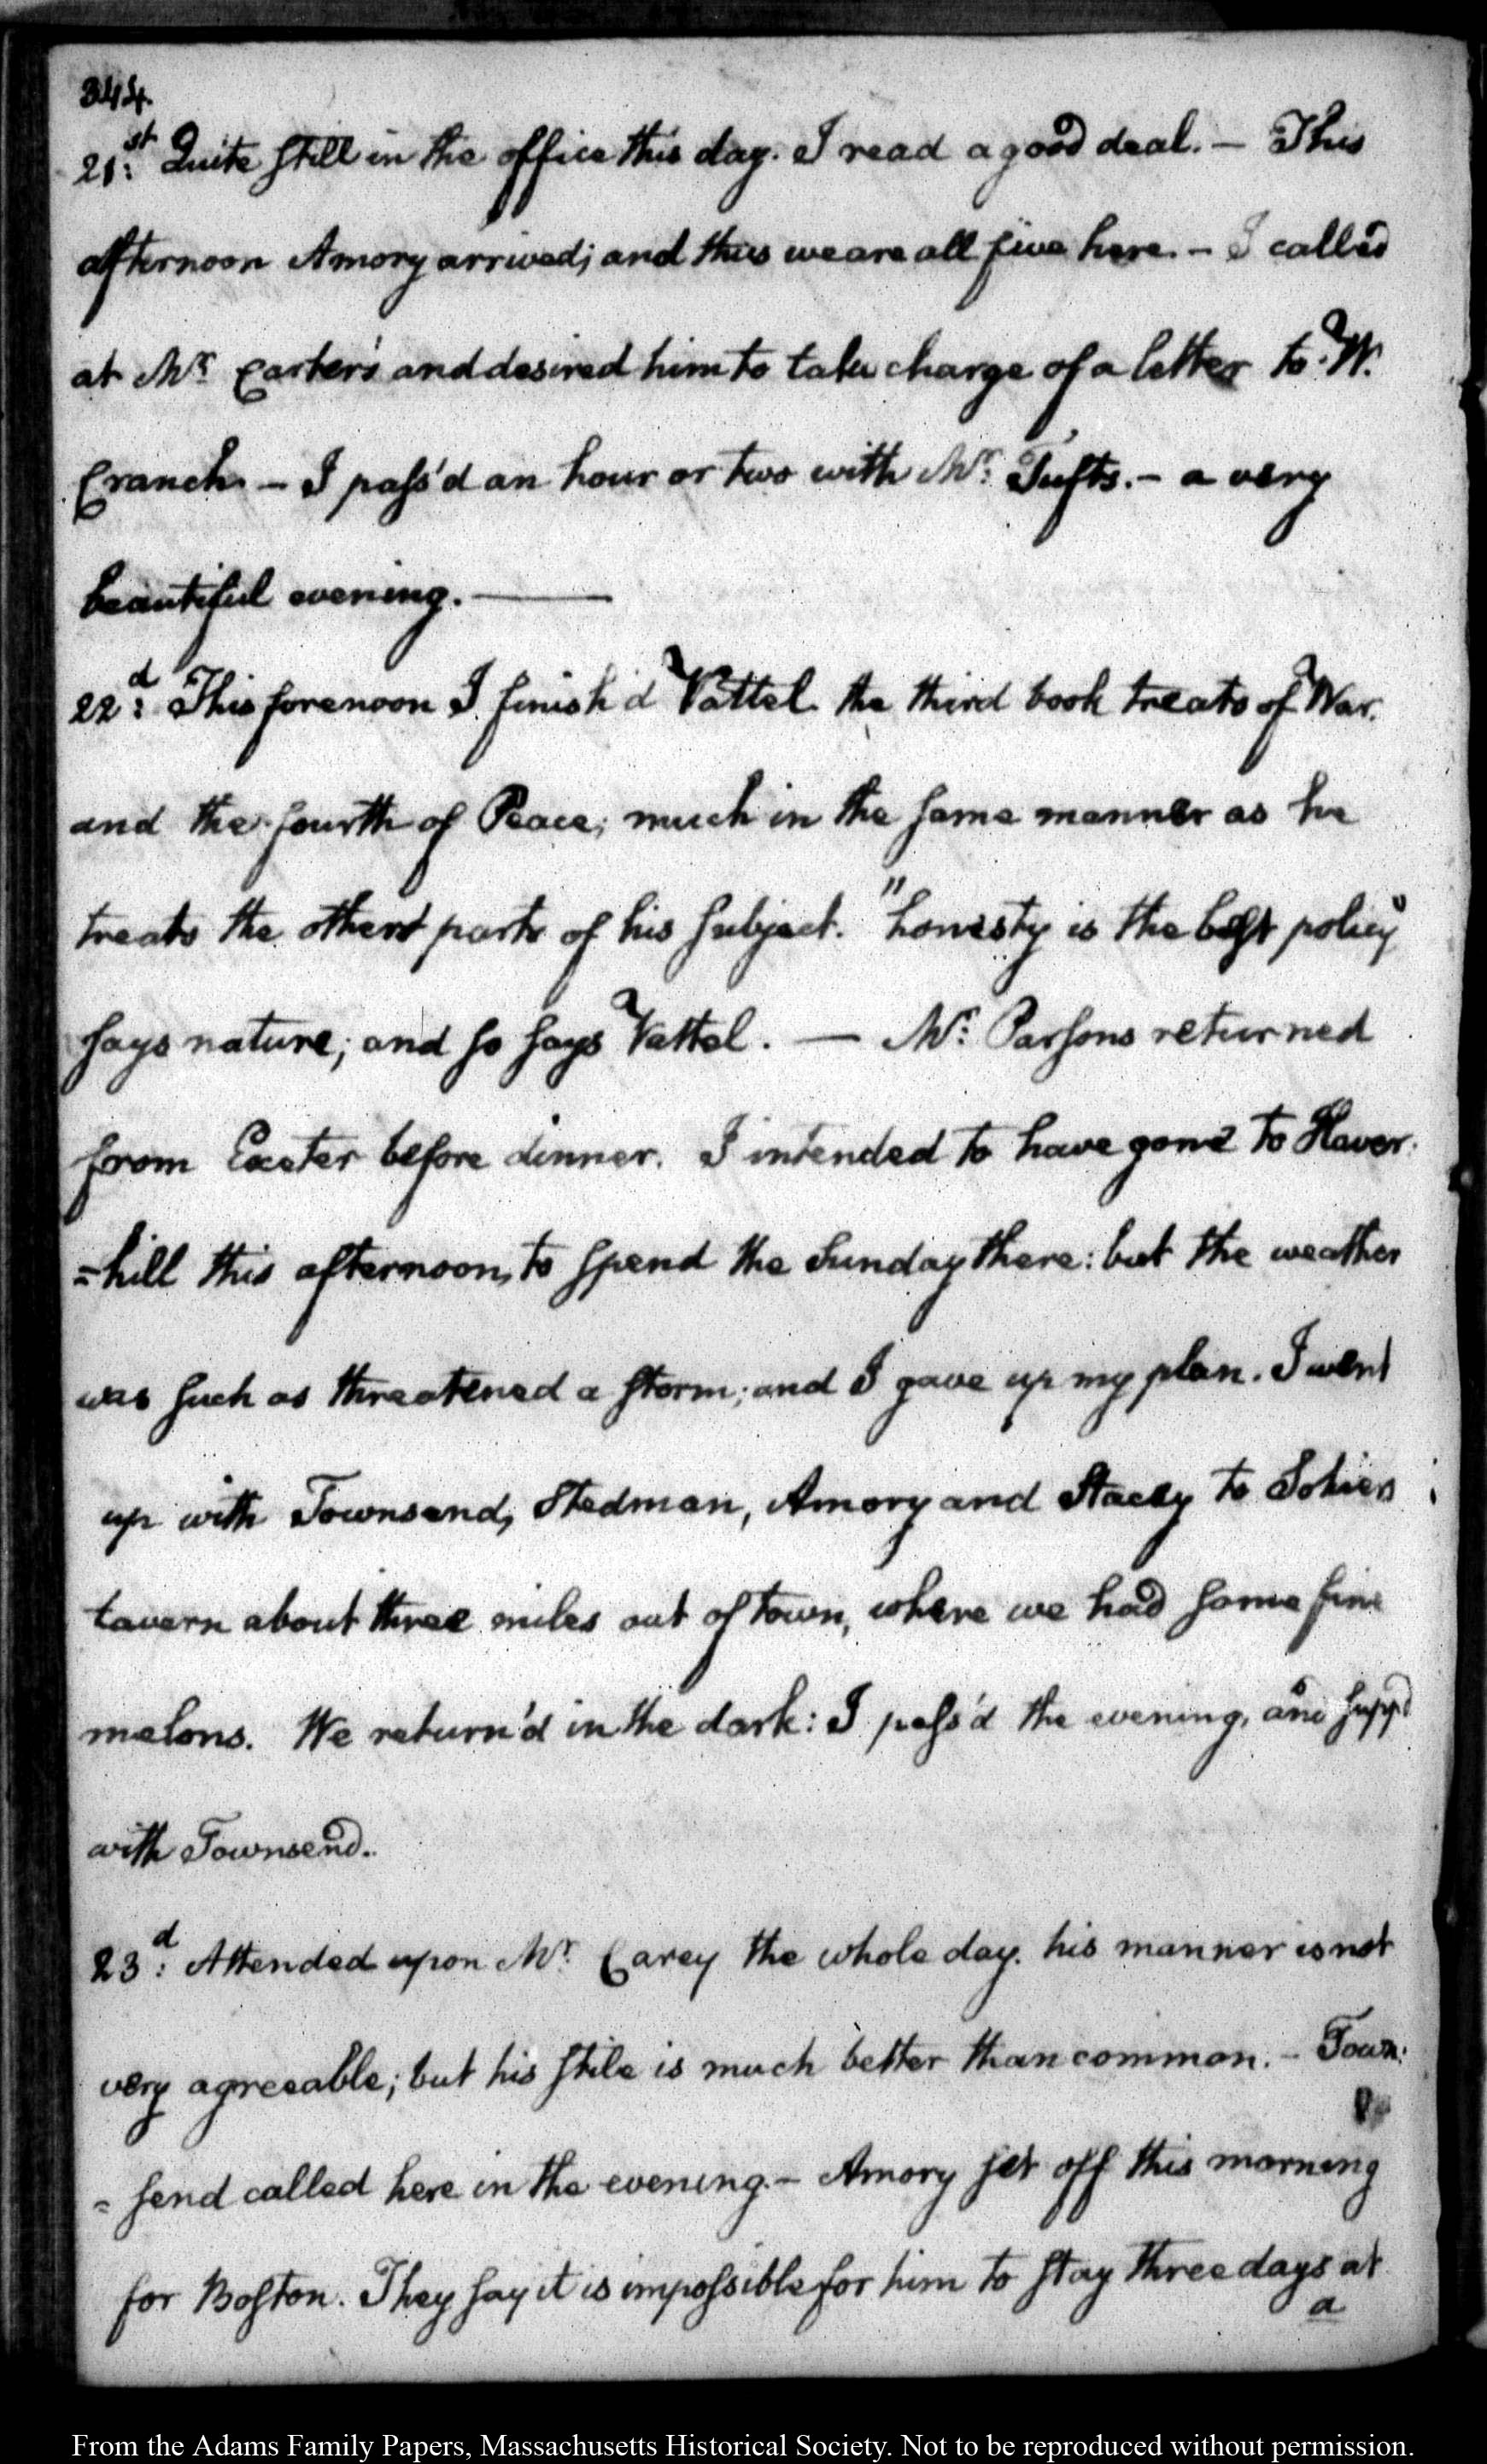 344.
21:st Quite still in the office this day. I read a good deal. — This
afternoon Amory arrived; and thus we are all five here. — I called
at Mr: Carter's and desired him to take charge of a letter to W.
Cranch. — I pass'd an hour or two with Mr: Tufts. — a very
beautiful evening. ———
22:d This forenoon I finish'd Vattel the third book treats of War.
and the fourth of Peace; much in the same manner as he
treats the other parts of his subject. "honesty is the best policy"
says nature; and so says Vattel. — Mr: Parsons returned
from Exeter before dinner. I intended to have gone to Haver-
=hill this afternoon, to spend the Sunday there: but the weather
was such as threatened a storm; and I gave up my plan. I went
up with Townsend, Stedman, Amory and Stacey to Sohiers
tavern about three miles out of town, where we had some fine
melons. We return'd in the dark: I pass'd the evening, and supp'd
with Townsend.
23:d Attended upon Mr: Carey the whole day. his manner is not
very agreeable; but his stile is much better than common. — Town-
=send called here in the evening. — Amory set off this morning
for Boston. They say it is impossible for him to stay three days at
a
From the Adams Family Papers, Massachusetts Historical Society. Not to be reproduced without permission.